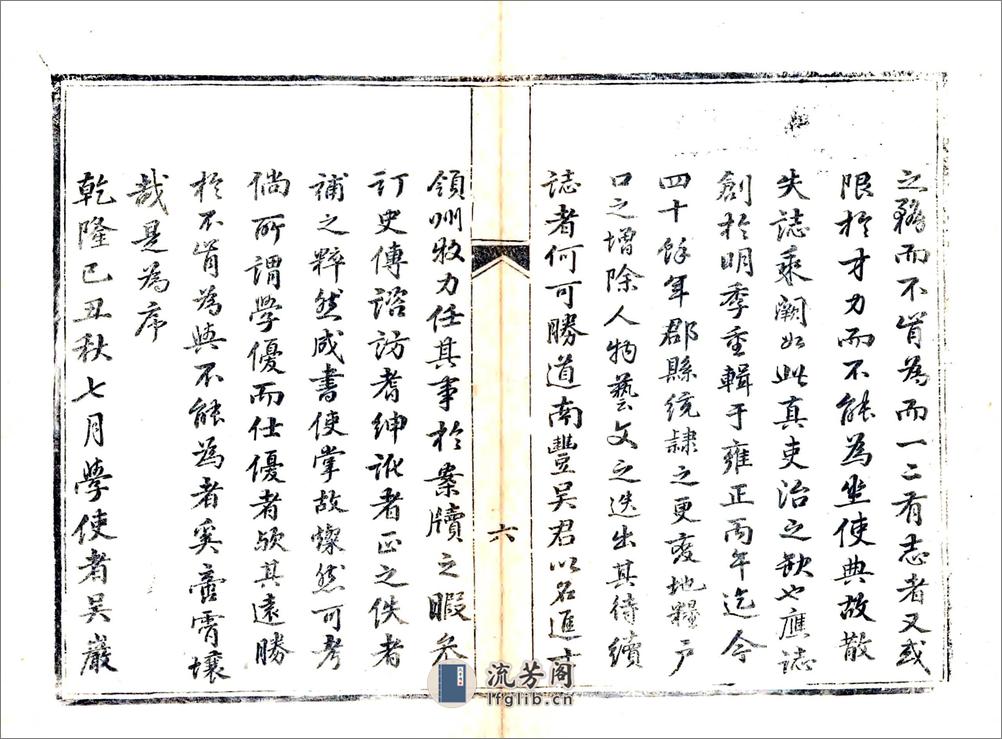 之務而不肯為而一二有志者又或
限於才力而不能為坐使典故散
失誌乘闕如此真吏治之缺也應誌
創於明季重輯于雍正丙年迄今
四十餘年郡縣統隷之更變地糧戶
口之增除人物藝文之迭出其待續
誌者何可勝道南豐吳君以名進士
六
領州牧力任其事於案牘之暇叅
訂史傳諮訪耆紳訛者正之佚者
補之粹然成書使掌故燦然可考
倘所謂學優而仕優者歟其遠勝
於不肯為與不能為者奚啻霄壤
哉是為序
乾隆己丑秋七月學使者吳巖
流芳阁
lfglib.cn